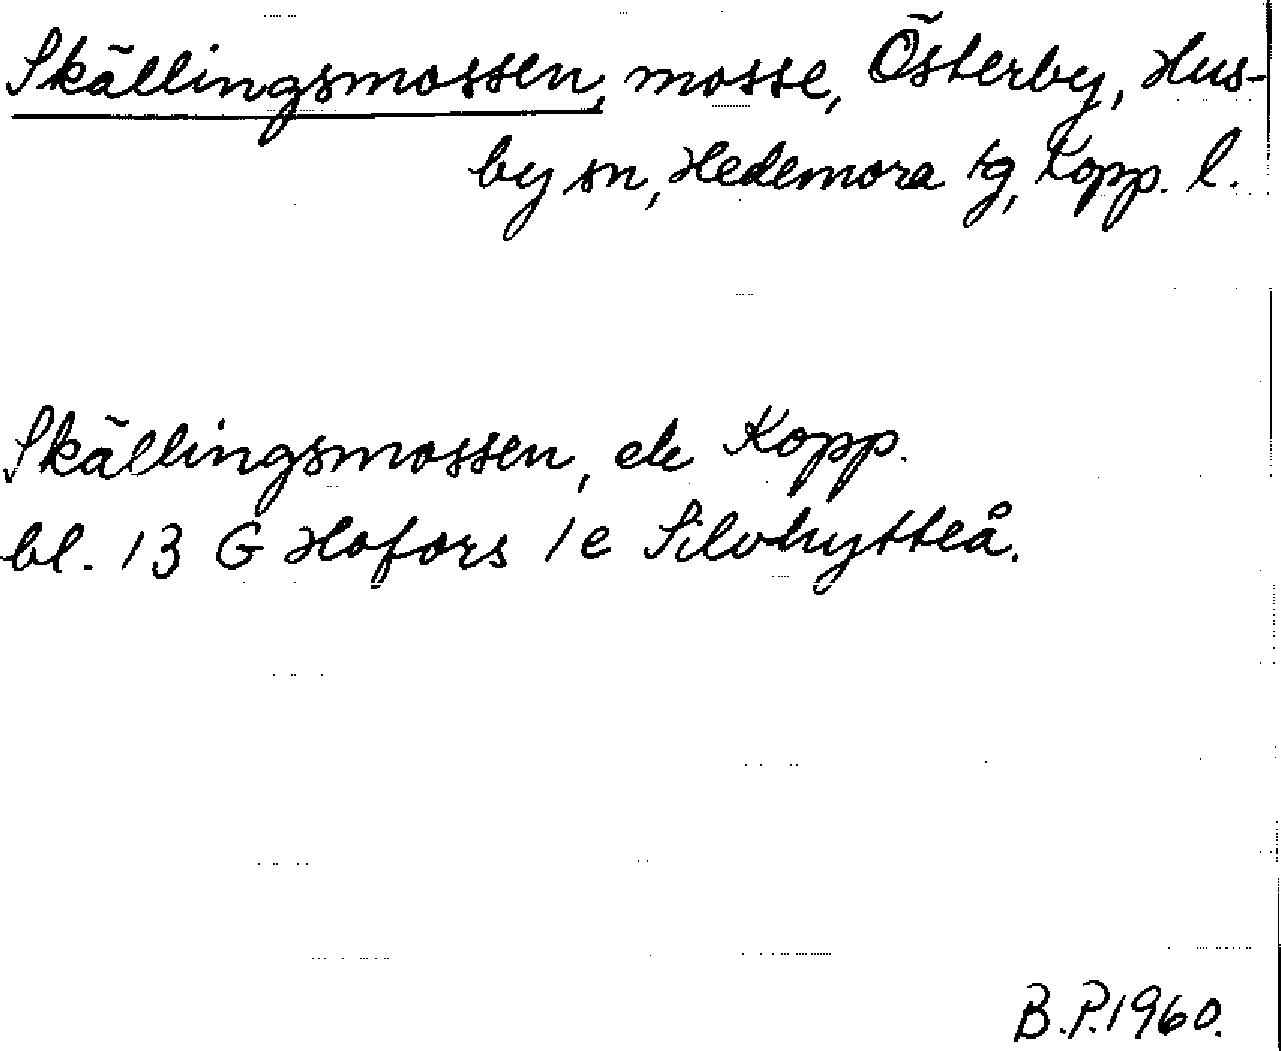 Skällingsmossen, mosse, Österby, Hus-
by sn, Hedemora tg, Kopp. l.
Skällingsmossen, ek Kopp.
bl. 13 G Hofors 1e Silvhytteå.
B.P. 1960.